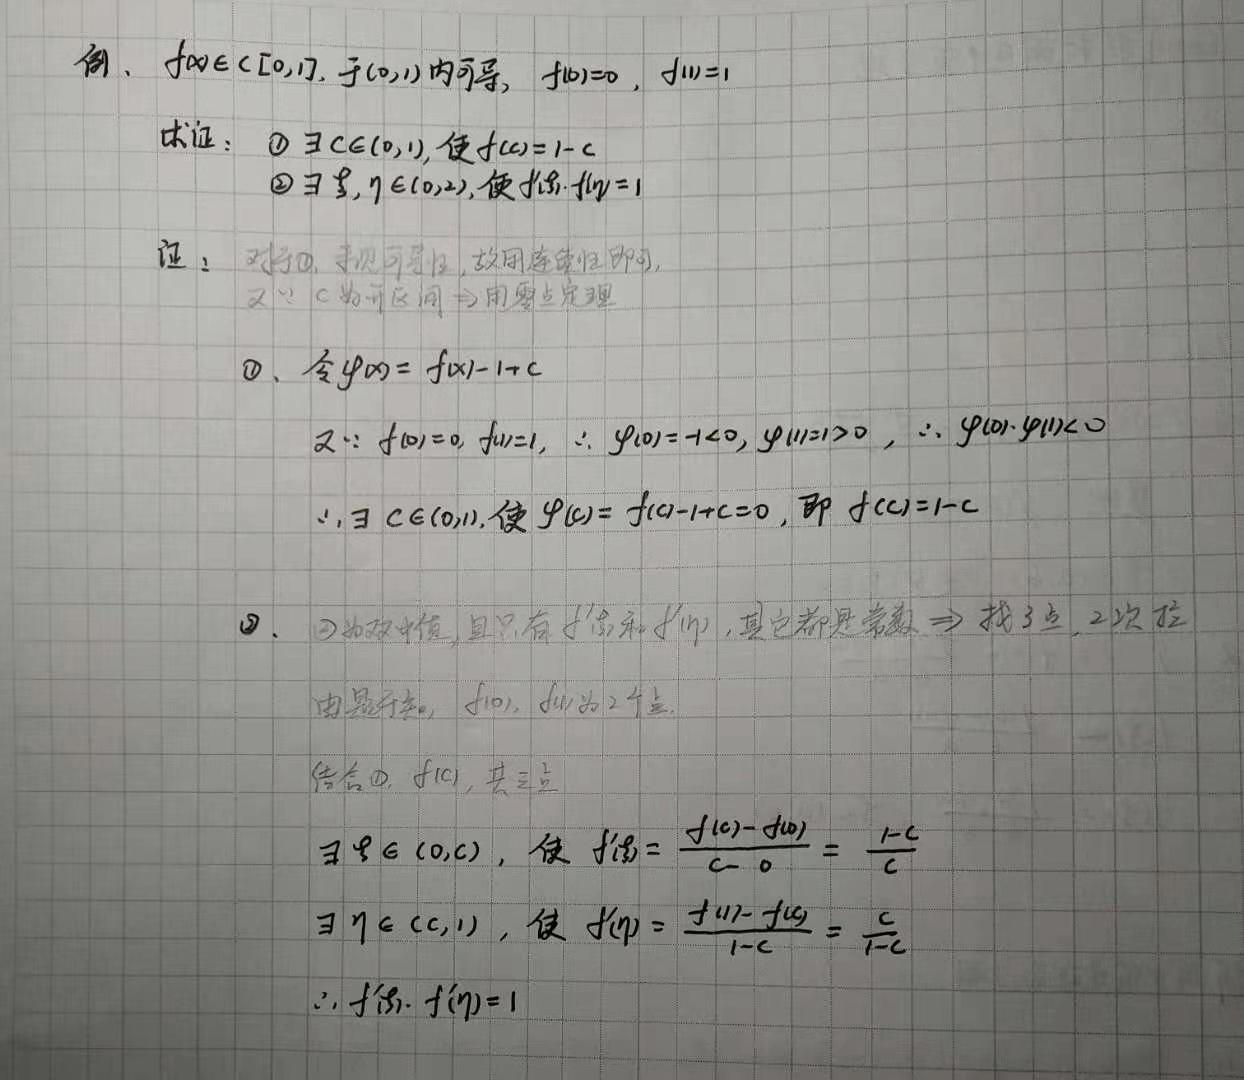 例、f(x)∈C[0,1],于(0,1)内可导, f(0)=0, f(1)=1
求证: ① ∃C∈(0,1),使f(c)=1-c
② ∃ξ,η∈(0,2),使f'(ξ)·f'(η)=1
证: 对于①,未见可导性,故用连续性即可,
又∵ C为开区间⇒用零点定理
①、令φ(x)= f(x)-1+c
又∵ f(0)=0, f(1)=1, ∴ φ(0)=-1<0, φ(1)=1>0, ∴ φ(0)·φ(1)<0
∴∃ C∈(0,1),使φ(c)= f(c)-1+c=0,即 f(c)=1-c
②、②为双中值,且只有f'(ξ)和f'(η),其它都是常数⇒找3点,2次拉
由题干知, f(0), f(1)为2个点.
结合①, f(c),共三点
∃ξ∈(0,c), 使 f'(ξ)= \frac{f(c)-f(0)}{c-0} = \frac{1-c}{c}
∃η∈(c,1), 使 f'(η)= \frac{f(1)-f(c)}{1-c} = \frac{c}{1-c}
∴ f'(ξ)· f'(η)=1